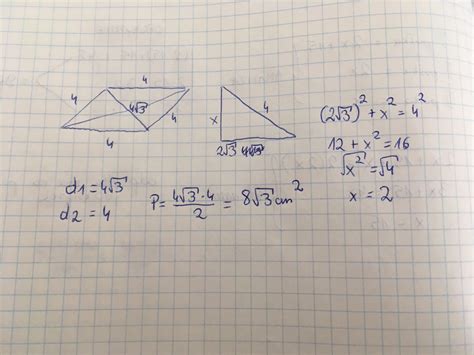 4
4
4√3
4
4
x
4
2√3
(2√3)² + x² = 4²
12 + x² = 16
√x² = √4
x = 2
d1 = 4√3
d2 = 4
P = 4√3·4 / 2 = 8√3 cm²